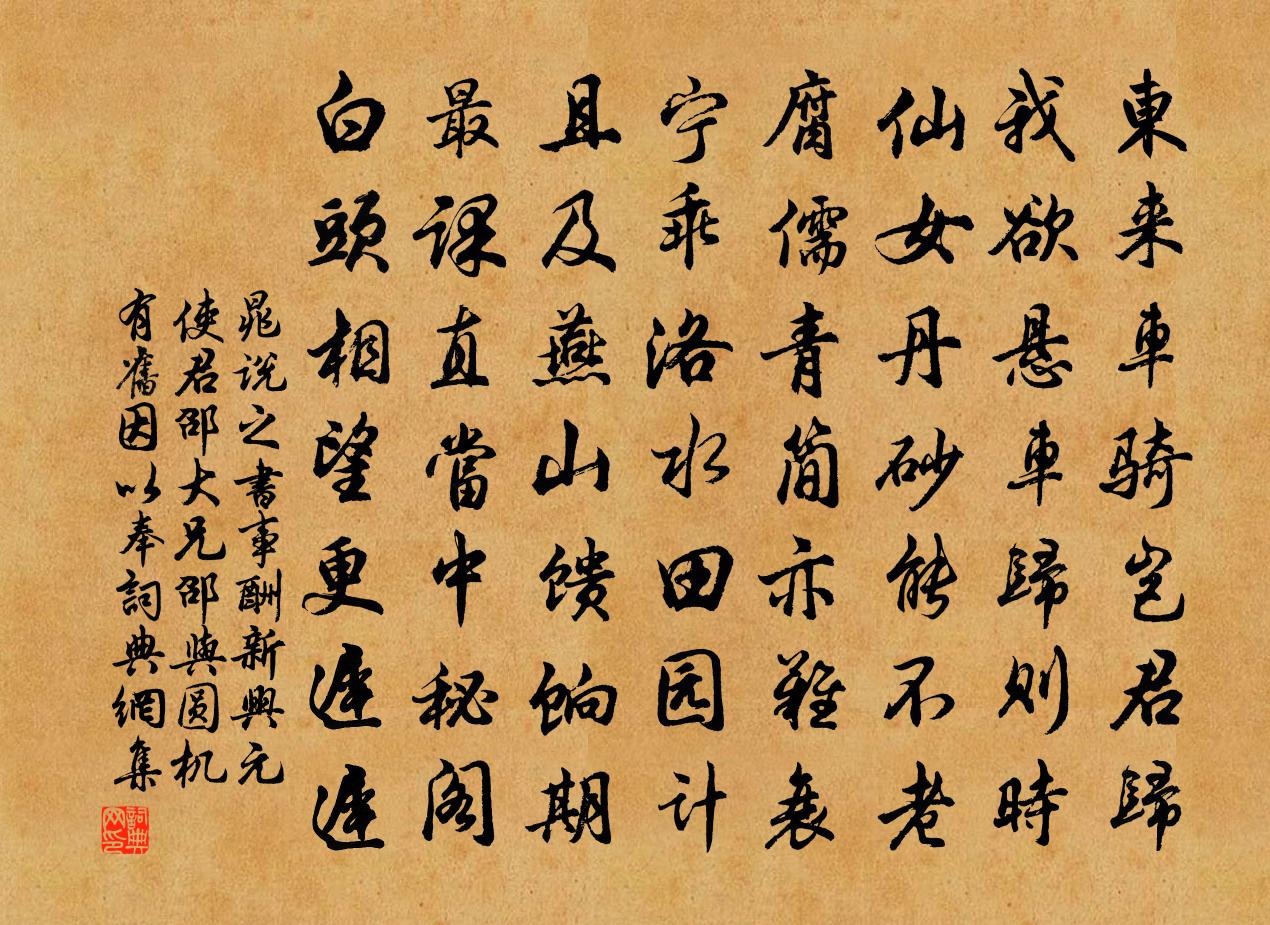 東来車骑岂君歸
我欲悬車歸则時
仙女丹砂能不老
腐儒青简亦難衰
宁乖洛水田园计
且及燕山馈饷期
最課直當中秘阁
白頭相望更遲遲
晁说之書事酬新興元
使君邵大兄邵與圆机
有舊因以奉詞典網集
詞典
网印